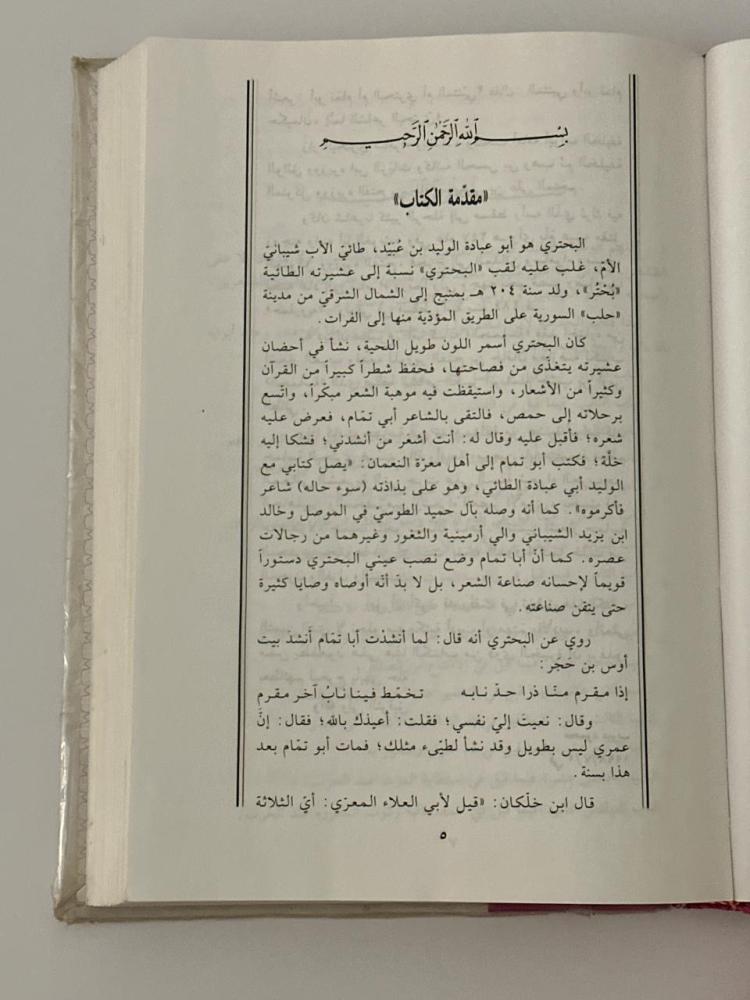 بسم الله الرحمن الرحيم
«مقدّمة الكتاب»
البحتري هو أبو عبادة الوليد بن عُبَيْد، طائيّ الأب شيبانيّ
الأمّ، غلب عليه لقب «البحتري» نسبة إلى عشيرته الطائية
«بُحْتُر»، ولد سنة ٢٠٤ هـ بمنبج إلى الشمال الشرقيّ من مدينة
«حلب» السورية على الطريق المؤدّية منها إلى الفرات.
كان البحتري أسمر اللون طويل اللحية، نشأ في أحضان
عشيرته يتغذّى من فصاحتها، فحفظ شطراً كبيراً من القرآن
وكثيراً من الأشعار، واستيقظت فيه موهبة الشعر مبكّراً، واتّسع
برحلاته إلى حمص، فالتقى بالشاعر أبي تمّام، فعرض عليه
شعره؛ فأقبل عليه وقال له: أنت أشعر من أنشدني؛ فشكا إليه
خلّة؛ فكتب أبو تمام إلى أهل معرّة النعمان: «يصل كتابي مع
الوليد أبي عبادة الطائي، وهو على بذاذته (سوء حاله) شاعر
فأكرموه». كما أنه وصله بآل حميد الطوسيّ في الموصل وخالد
ابن يزيد الشيباني والي أرمينية والثغور وغيرهما من رجالات
عصره. كما أنّ أبا تمام وضع نصب عيني البحتري دستوراً
قويماً لإحسانه صناعة الشعر، بل لا بدّ أنّه أوصاه وصايا كثيرة
حتى يتقن صناعته.
روي عن البحتري أنه قال: لما أنشدْت أبا تمّام أَنشدَ بيت
أوس بن حَجَر:
إذا مقرم منّا ذرا حدّ نابه تخمّط فينا نابُ آخر مقرم
وقال: نعيتَ إليّ نفسي؛ فقلت: أعيذك بالله؛ فقال: إنَّ
عمري ليس بطويل وقد نشأ لطيّىء مثلك؛ فمات أبو تمّام بعد
هذا بسنة.
قال ابن خلّكان: «قيل لأبي العلاء المعرّي: أيّ الثلاثة
٥